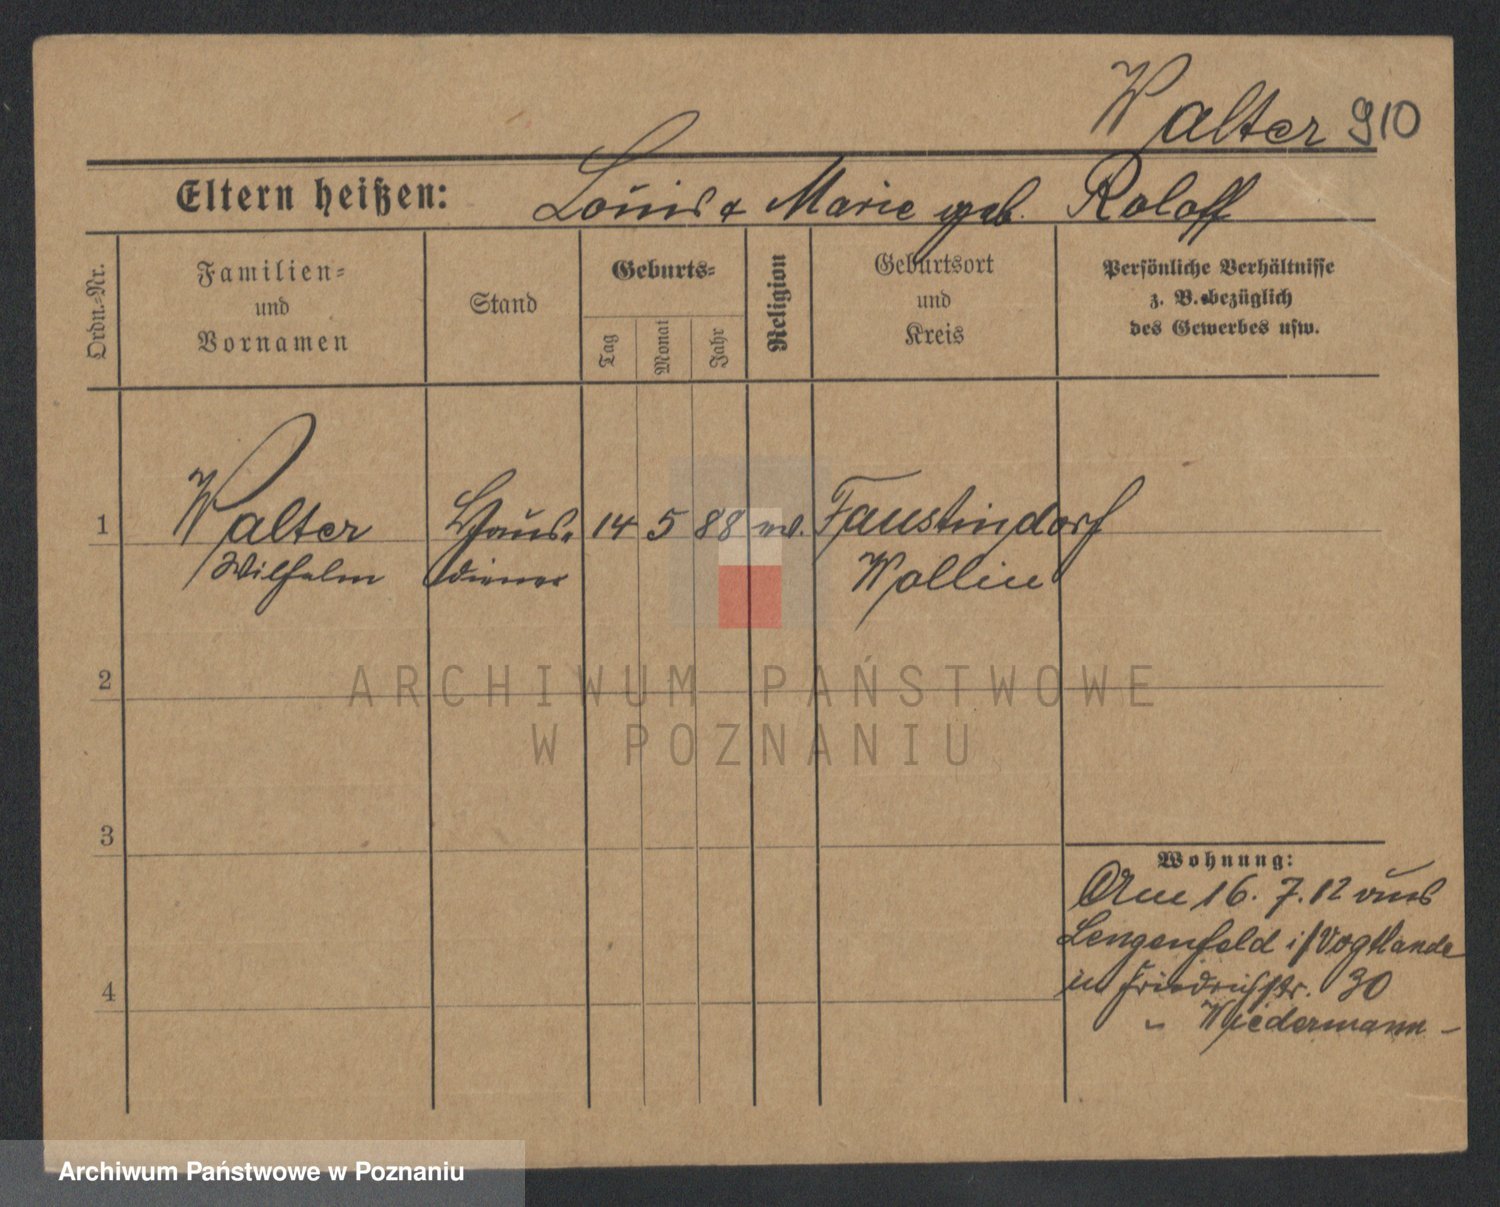 Walter 910
Eltern heißen: Louis & Marie geb. Roloff
Ordn.-Nr.
Familien-
und
Vornamen
Stand
Geburts-
Tag
Monat
Jahr
Religion
Geburtsort
und
Kreis
Persönliche Verhältnisse
z. B. bezüglich
des Gewerbes usw.
1 Walter Haus- 14 5 88 ev. Faustindorf
Wilhelm diener Wollin
2
3
4
Wohnung:
Am 16. 7. 12 aus
Lengenfeld i/Vogtlande
in Friedrichstr. 30
" Wiedermann -
ARCHIWUM PAŃSTWOWE
W POZNANIU
Archiwum Państwowe w Poznaniu